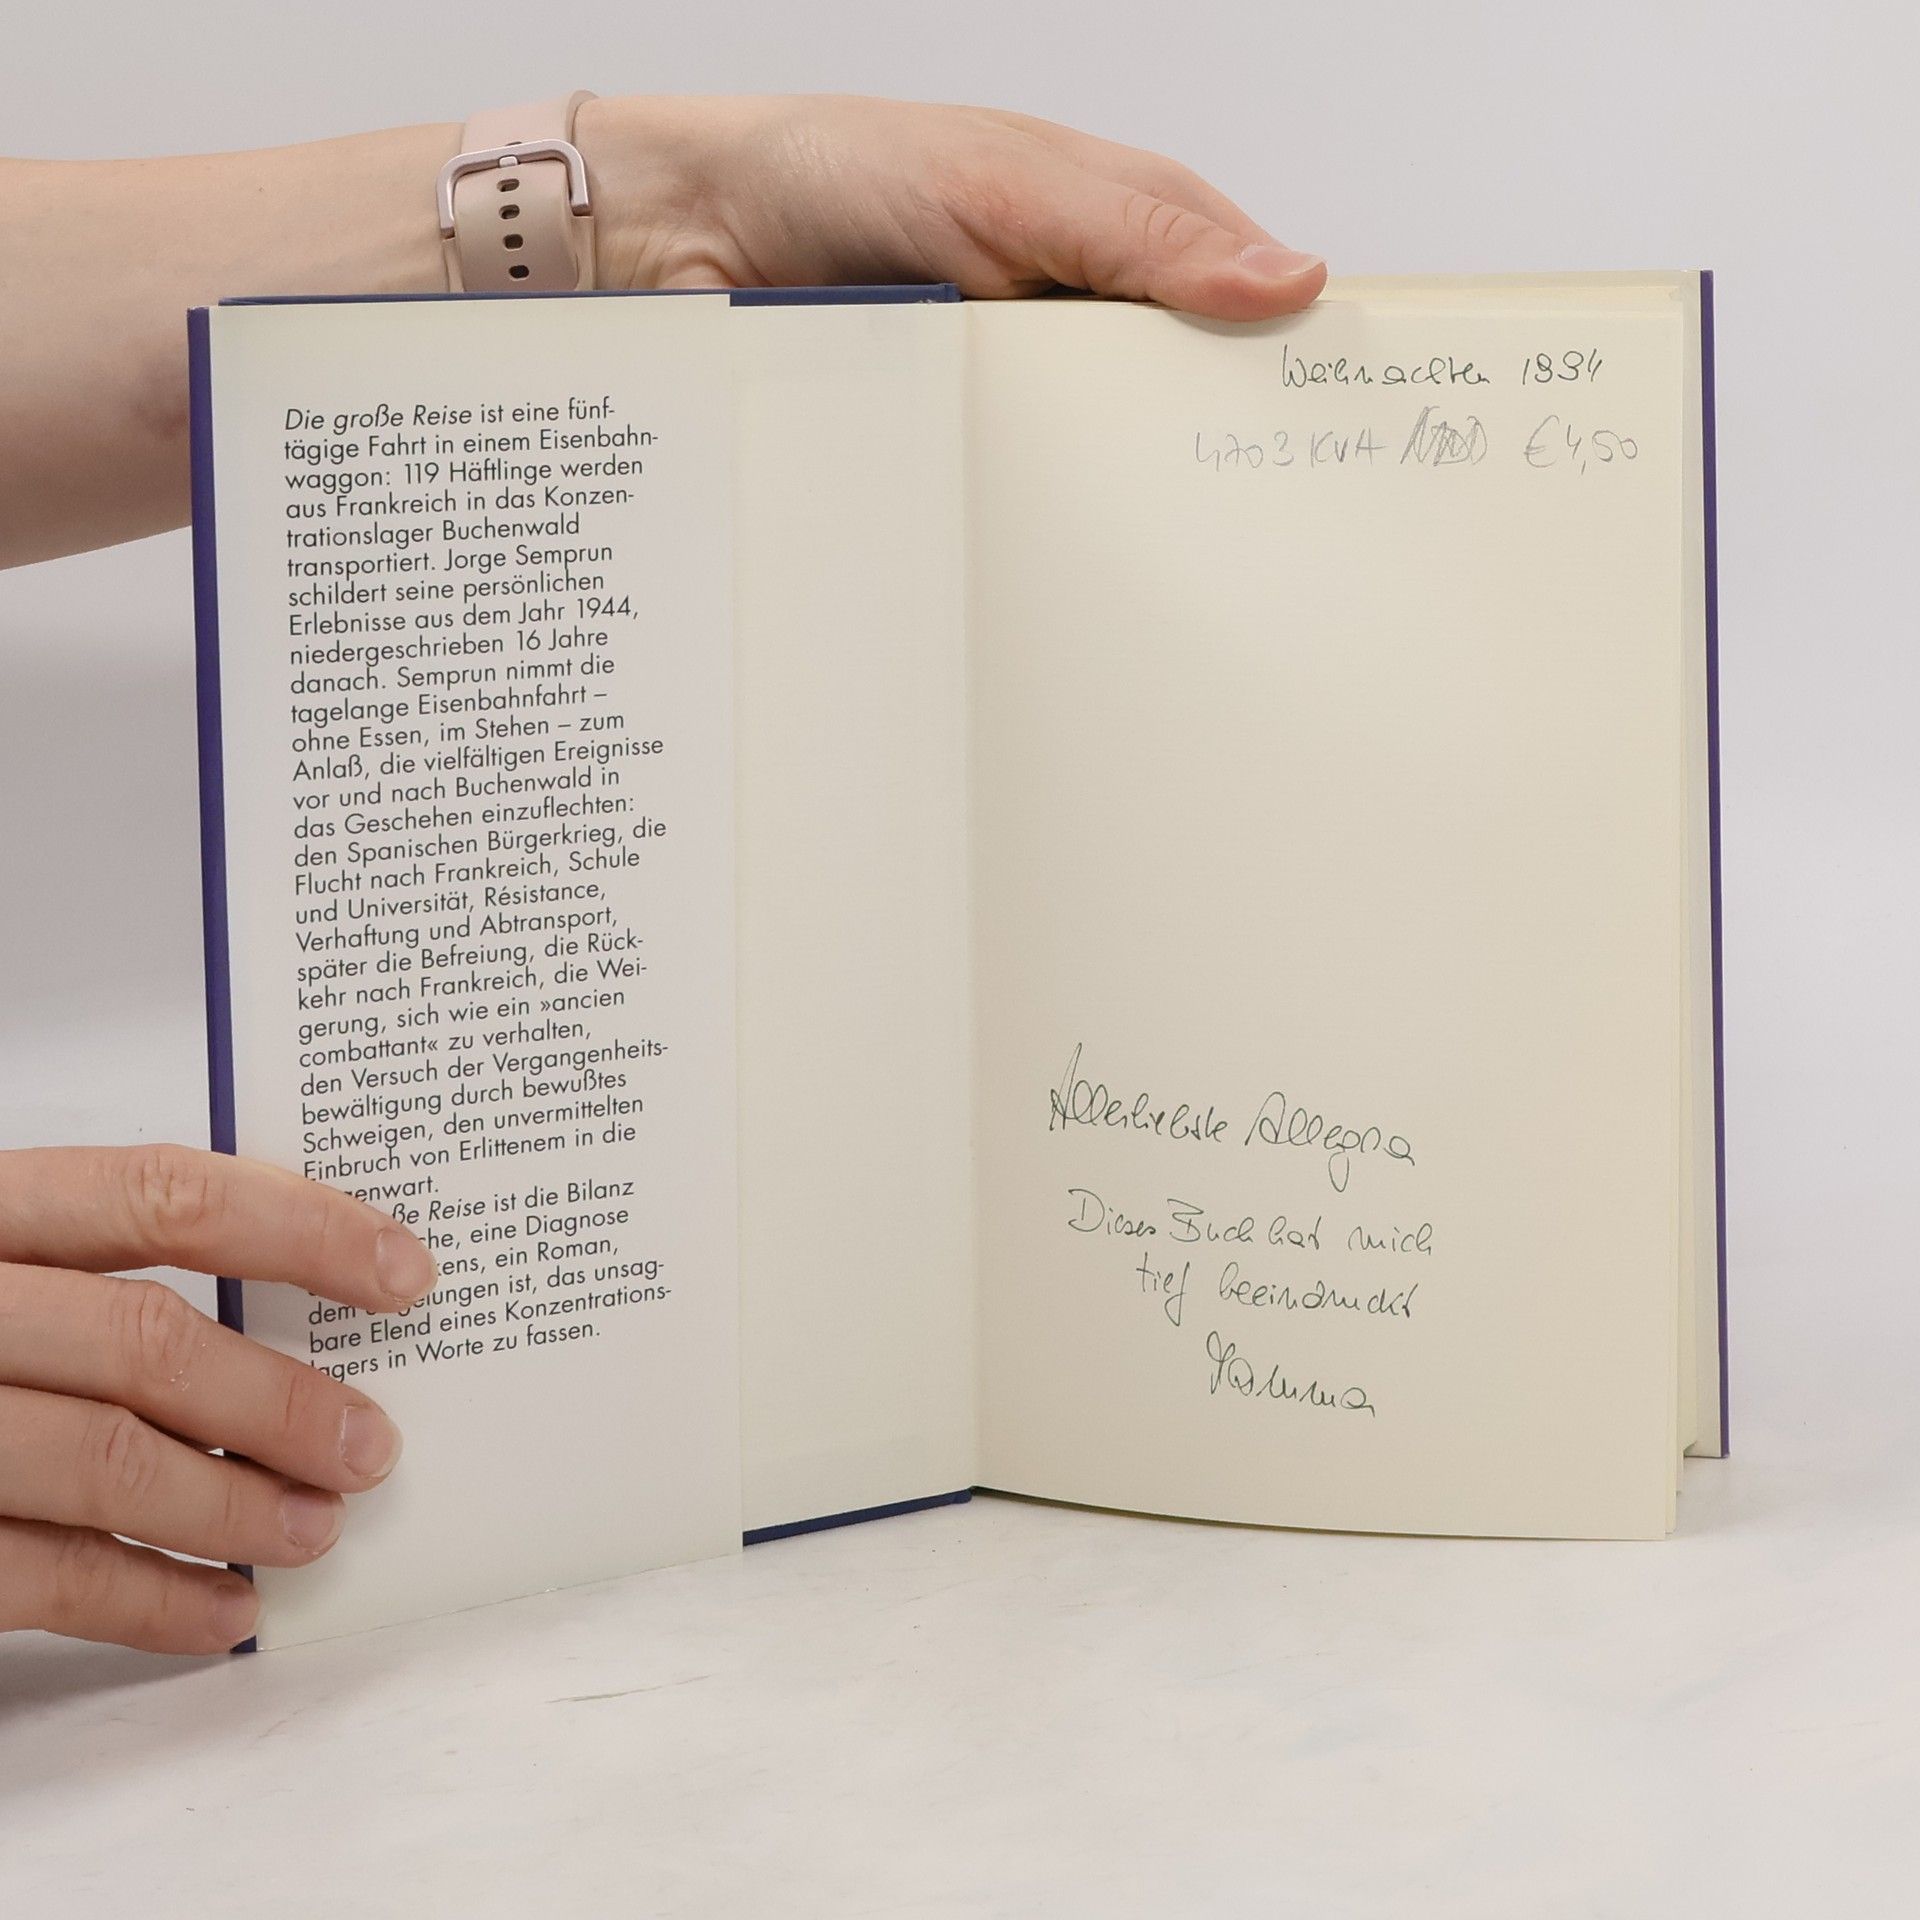 Die große Reise ist eine fünf-
tägige Fahrt in einem Eisenbahn-
waggon: 119 Häftlinge werden
aus Frankreich in das Konzen-
trationslager Buchenwald
transportiert. Jorge Semprun
schildert seine persönlichen
Erlebnisse aus dem Jahr 1944,
niedergeschrieben 16 Jahre
danach. Semprun nimmt die
tagelange Eisenbahnfahrt –
ohne Essen, im Stehen – zum
Anlaß, die vielfältigen Ereignisse
vor und nach Buchenwald in
das Geschehen einzuflechten:
den Spanischen Bürgerkrieg, die
Flucht nach Frankreich, Schule
und Universität, Résistance,
Verhaftung und Abtransport,
später die Befreiung, die Rück-
kehr nach Frankreich, die Wei-
gerung, sich wie ein »ancien
combattant« zu verhalten,
den Versuch der Vergangenheits-
bewältigung durch bewußtes
Schweigen, den unvermittelten
Einbruch von Erlittenem in die
enwart.
ße Reise ist die Bilanz
che, eine Diagnose
kens, ein Roman,
dem lungen ist, das unsag-
bare Elend eines Konzentrations-
lagers in Worte zu fassen.
Weihnachten 1994
4703 KVA €4,50
Allerliebste Allegra
Dieses Buch hat mich
tief beeindruckt
Mamma